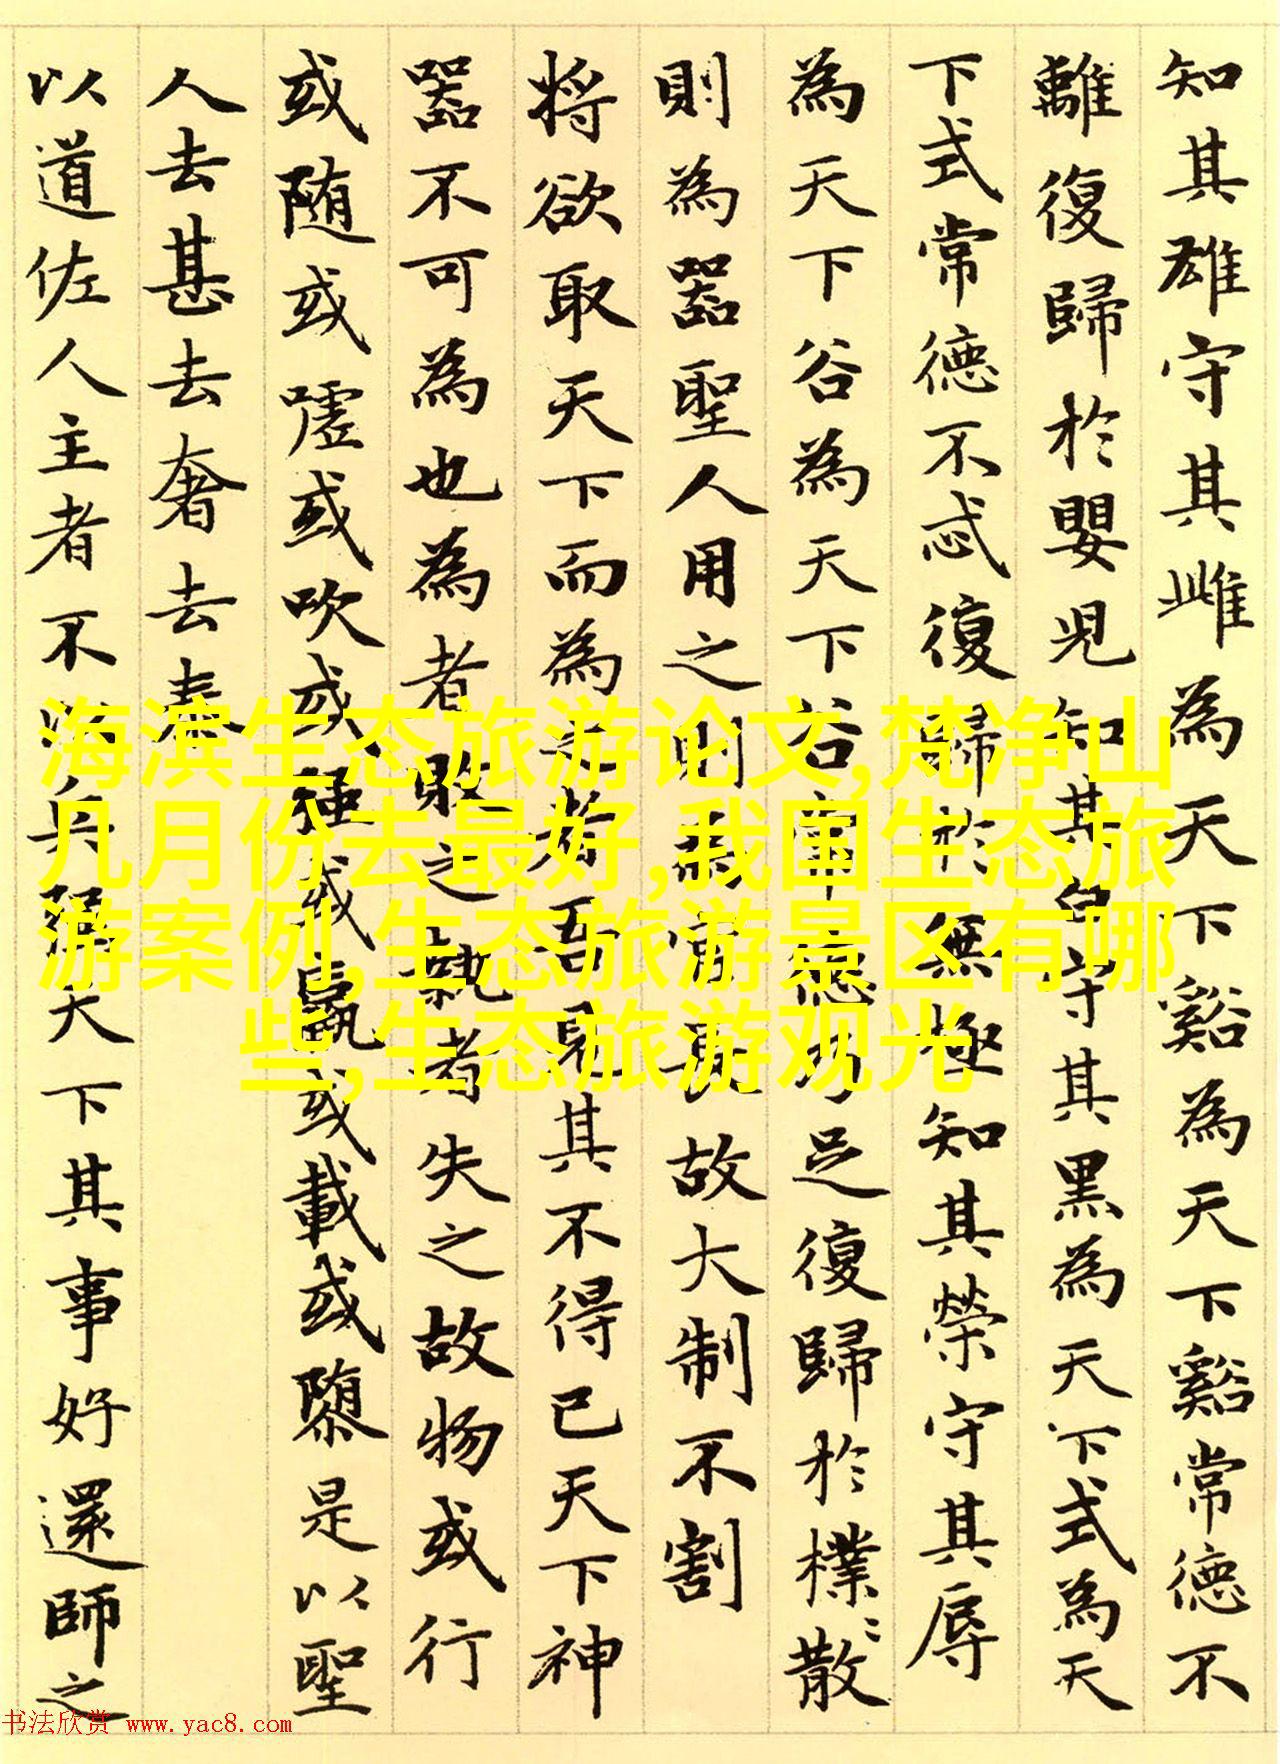 知其雄守其雌為天下谿為天下谿常德不
離復歸於嬰兒知其白守其黑為天下式為天
下式常德不忒復歸於無極知其榮守其辱
為天下谷為天下谷常德乃足復歸於樸〻散
則為器聖人用之則為官長故大制不割
將欲取天下而為之者吾見其不得已天下神
器不可為也為者敗之執者失之故物或行
或随或噓或吹或強或羸或載或隳是以聖
人去甚去奢去泰
以道佐人主者不以兵強天下其事好還師之
海滨生态旅游论文,梵净山
几月份去最好,我国生态旅
游案例,生态旅游景区有哪
些,生态旅游观光
书法欣赏 www.yac8.com